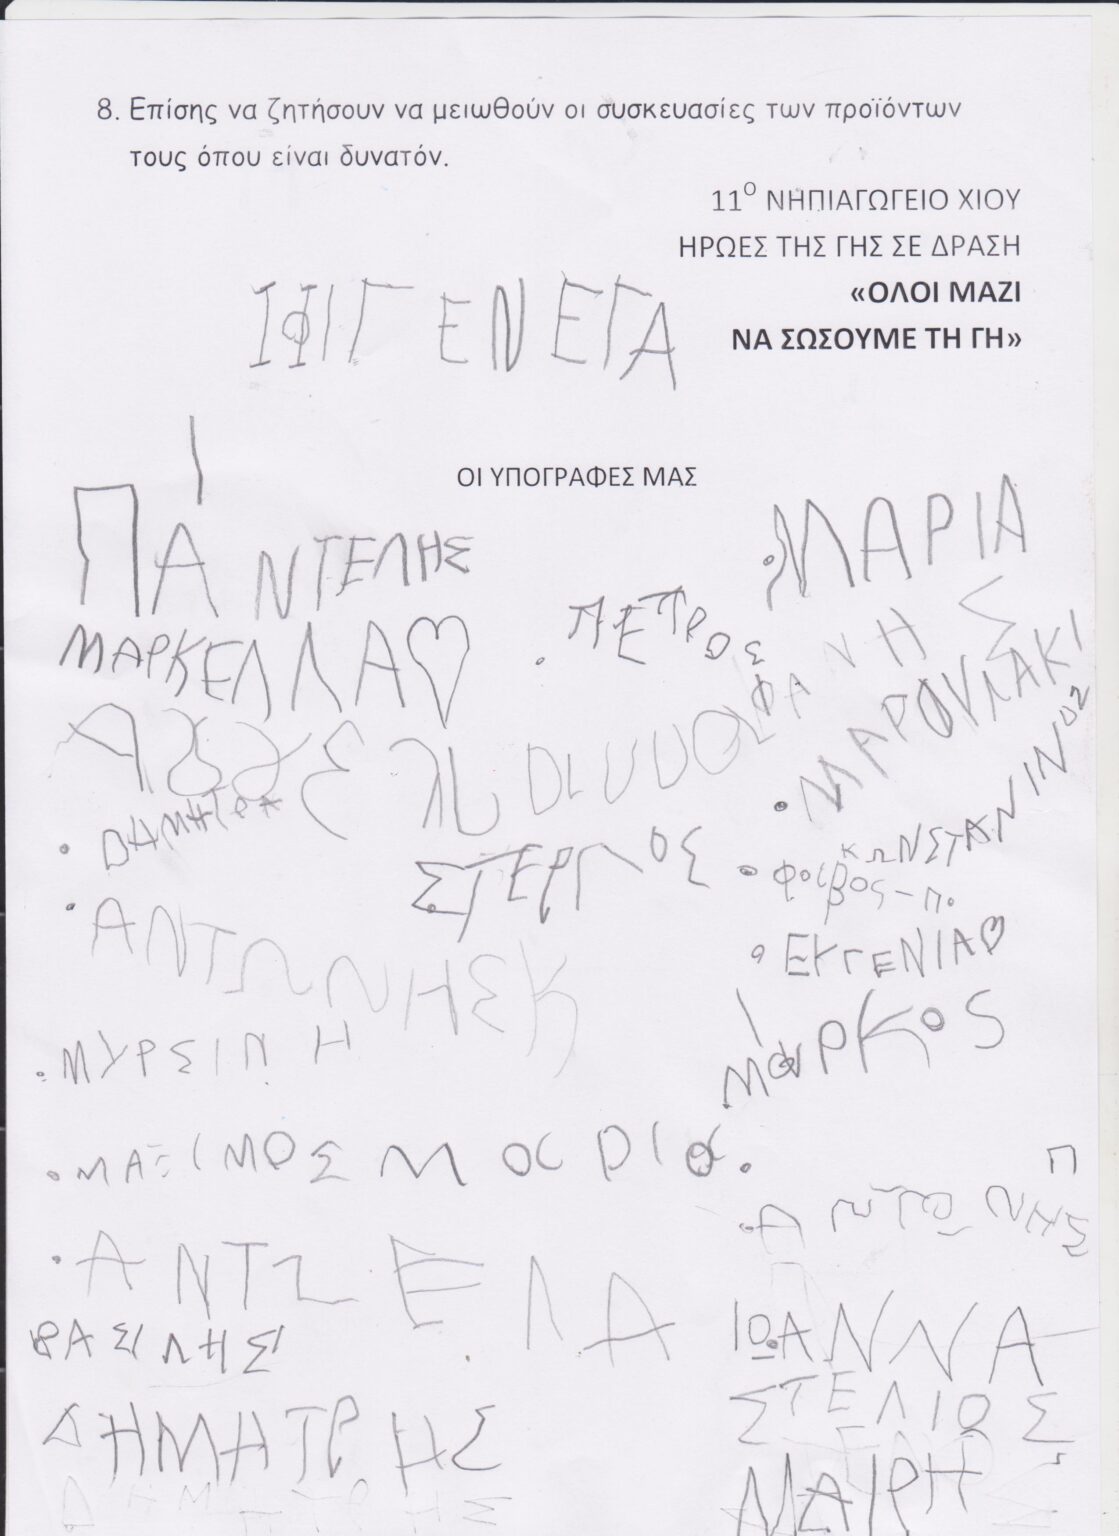 8. Επίσης να ζητήσουν να μειωθούν οι συσκευασίες των προϊόντων
τους όπου είναι δυνατόν.
11Ο ΝΗΠΙΑΓΩΓΕΙΟ ΧΙΟΥ
ΗΡΩΕΣ ΤΗΣ ΓΗΣ ΣΕ ΔΡΑΣΗ
«ΟΛΟΙ ΜΑΖΙ
ΝΑ ΣΩΣΟΥΜΕ ΤΗ ΓΗ»
ΙΦΙΓΕΝΕΓΑ
ΟΙ ΥΠΟΓΡΑΦΕΣ ΜΑΣ
ΠΑΝΤΕΛΗΣ
ΜΑΡΙΑ
ΠΕΤΡΟΣ
ΜΑΡΚΕΛΛΑ
ΜΑΡΟΥΛΑΚΙ
ΣΤΕΡΓΙΟΣ
φοιβος-π.
ΑΝΤΩΝΗΣΚ
ΕΥΓΕΝΙΑ
ΜΥΡΣΙΝΗ
Μαρκος
ΜΑΞΙΜΟΣ
Μαρια
Π
ΑΝΤΩΝΗΣ
ΑΝΤΖΕΛΑ
ΒΑΣΙΛΗΣ
ΙΩΑΝΝΑ
ΣΤΕΛΙΟΣ
ΔΗΜΑΤΡΗΣ
ΜΑΙΡΗ